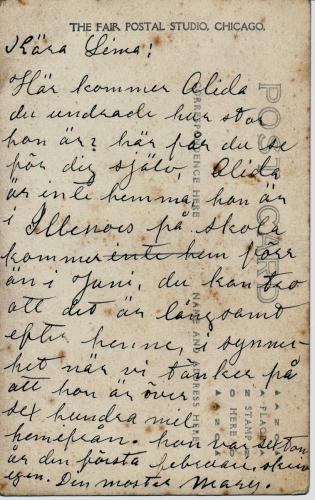 THE FAIR POSTAL STUDIO, CHICAGO.
Kära Sima!
Här kommer Alida
du undrade hur stor
hon är? här får du se
för dig själv. Alida
är inte hemma, hon är
i Illenois på skola
kommer inte hem förr
än i Juni, du kan tro
att det är långsamt
efter henne, i synner
het när vi tänker på
att hon är över
sex hundra mil
hemefrån. hon var
är den första februari,
egen. Din moster Mary.
POST CARD
CORRESPONDENCE HERE
NAME AND ADDRESS HERE
PLACE
STAMP
HERE